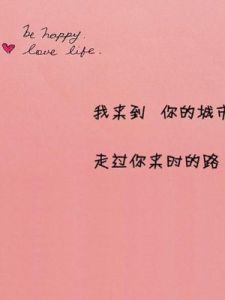 be happy.
love life.
我来到 你的城市
走过你来时的路